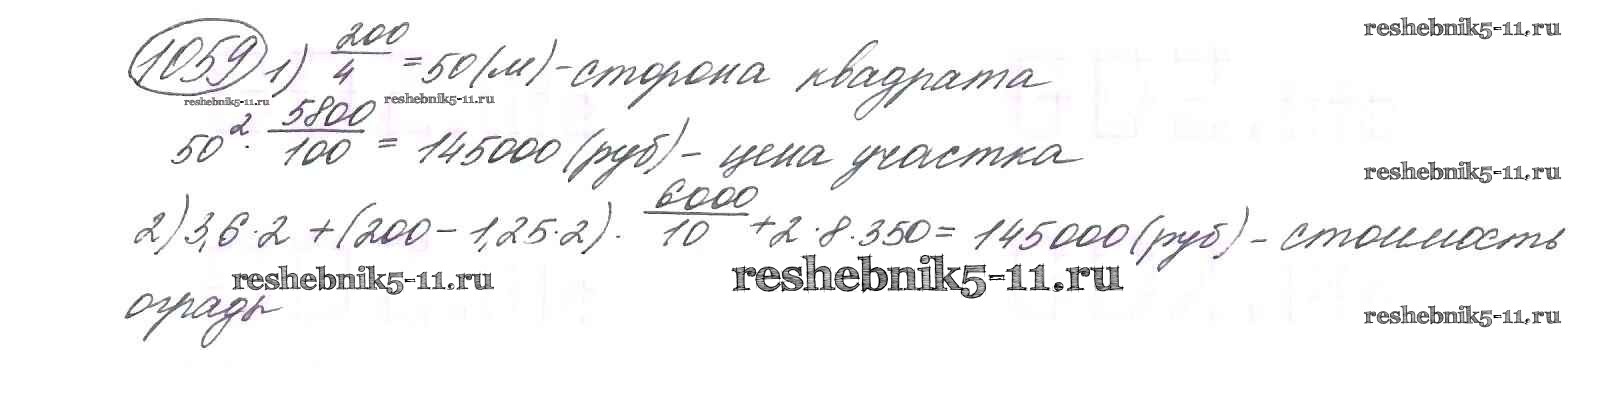 reshebnik5-11.ru
1059 1) 200/4 = 50 (м) - сторона квадрата
reshebnik5-11.ru reshebnik5-11.ru
50² · 5800/100 = 145000 (руб) - цена участка
reshebnik5-11.ru
2) 3,6 · 2 + (200 - 1,25 · 2) · 6000/10 + 2 · 8 · 350 = 145000 (руб) - стоимость
reshebnik5-11.ru reshebnik5-11.ru
ограды
reshebnik5-11.ru